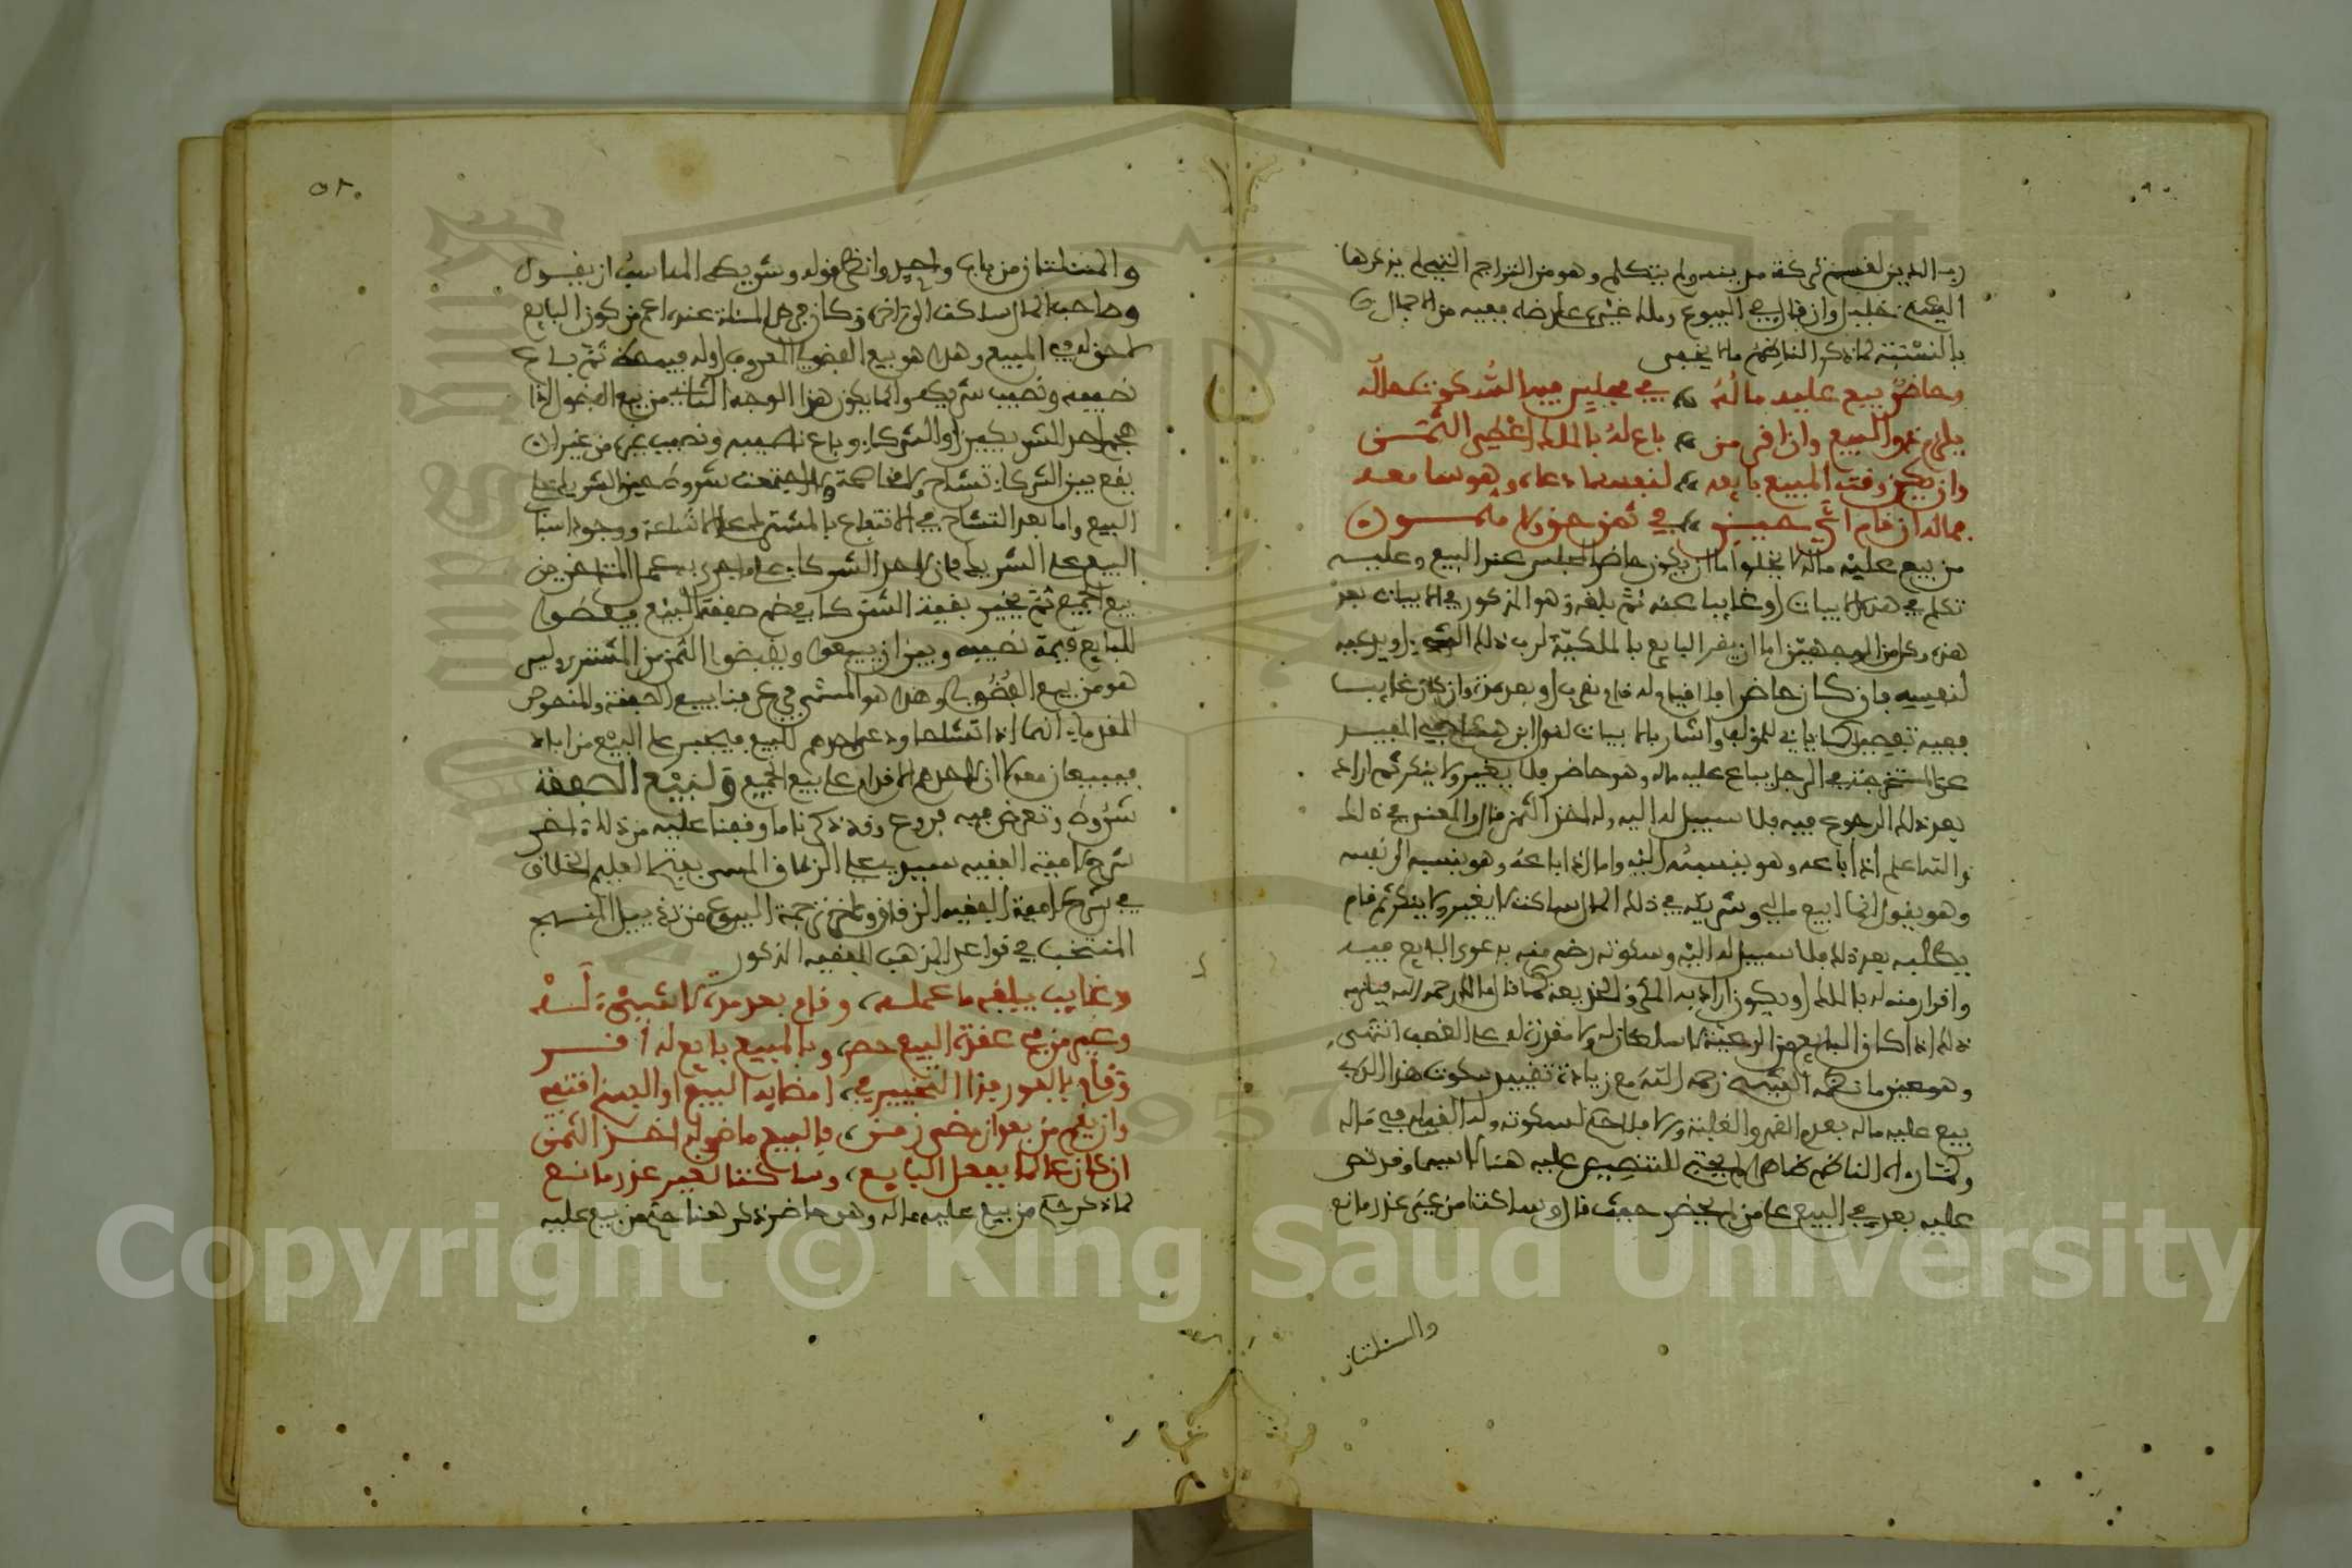 رب الدين لقسمة تركة مدينه ولم يتكلم وهو من التراجم التي لم يذكرها
الشيخ خليل وان قال في البيوع وملك غيره على رضاه ففيه من الاجمال
بالنسبة لما ذكر الناظم ما لا يخفى
وحاضر بيع عليه ماله في مجلس فيه السكوت حاله
يلزم ذو البيع وان اقر من باع له بالملك اعطي الثمن
وان يكن وقت المبيع بايعه لنفسه ادعاه وهو سامعه
فماله ان قام اي حين في ثمن حق ولا مثمون
من بيع عليه ماله لا يخلو اما ان يكون حاضرا لمجلس عقد البيع وعليه
تكلم في هذه الابيات او غايبا عنه ثم بلغه وهو المذكور في الابيات بعد
هذه وكل من الوجهين اما ان يقر البايع بالملكية لرب ذلك الشيء او يدعيه
لنفسه فان كان حاضرا فلا قيام له قام بقرب او بعد مدة وان كان غايبا
ففيه تفصيل كما ياتي للمؤلف واشار بالابيات لقول ابن هشام في المفيد
عن المستخرجة في الرجل يباع عليه ماله وهو حاضر فلا يغير ولا ينكر ثم اراد
بعد ذلك الرجوع فيه فلا سبيل له اليه وله اخذ الثمن قال والمعنى في ذلك
والله اعلم اذا باعه وهو ينسبه اليه واما اذا باعه وهو ينسبه الى نفسه
وهو يقول انما ابيع مالي وشريكه في ذلك المال ساكت لا يغير ولا ينكر ثم قام
يطلبه بعد ذلك فلا سبيل له اليه وسكوته رضى منه بدعوى البايع فيه
واقرار منه له بالملك او يكون اراد به المكر والخديعة كما قال مالك رحمه الله فيلزمه
ذلك اذا كان البايع من الرعية لا سلطان له ولا مقدرة له على الغصب انتهى
وهو عين ما نظمه الشيخ رحمه الله مع زيادة تقييد سكوت هذا الذي
بيع عليه ماله بعدم القهر والغلبة والا فلا حكم لسكوته وله القيام في ماله
عليه بعد في البيع على من لم يحضر حيث قال وساكتا من غير عذر مانع
والمسئلتان
والمسئلتان من باب واحد وانظر قوله وشريكه المناسب ان يقول
وصاحب المال ساكت
لا حق له في المبيع وهذا هو بيع الفضولي المعروف او له فيه حظ ثم باع
نصيبه ونصيب شريكه وانما يكون هذا الوجه الثاني من بيع الفضولي اذا
هجم احد الشريكين او الشركاء وباع نصيبه ونصيب غيره من غير ان
يقع بين الشركاء تشاح ولا مخاصمة
البيع واما بعد التشاح في الانتفاع بالمشترك على الاشاعة ووجود اسباب
البيع على الشريك فان لاحد الشركاء على ما جرى به عمل المتاخرين
بيع الجميع ثم يخير بقية الشركاء بعضهم صفقة البيع فيعطوا
للبايع قيمة نصيبه وبين ان يبيعوا ويقبضوا الثمن من المشتري وليس
هو من بيع الفضولي وهذا هو المسمى في عرفنا ببيع الصفقة والمنصوص
للقدماء انما اذا تشاحا ودعى احدهم للبيع فيجبر على البيع من اباه
فيبيعان معا لا ان لاحدهم الاقدام على بيع الجميع ولبيع الصفقة
شروط وتعرض فيه فروع وقد ذكرنا ما وقفنا عليه من ذلك اخر
شرح لامية الفقيه سيدي علي الزقاق المسمى بفتح العليم الخلاق
في شرح لامية الفقيه الزقاق وكذا في ترجمة البيوع من تذييل المنهج
المنتخب في قواعد المذهب للفقيه المذكور
وغايب يبلغه ما عمله، وقام بعد مدة لا شيء له
وغير من في عقدة البيع حضر، وبالمبيع بايع له اقر
وقام بالفور فذا التخيير في، امضايه البيع او الفسخ اقتفي
وان يقم من بعد ان مضى زمن، فالبيع ماض وله اخذ الثمن
ان كان عالما بفعل البايع، وساكتا لغير عذر مانع
لما ذكر حكم من بيع عليه ماله وهو حاضر ذكر هنا حكم من بيع عليه
Copyright © King Saud University
1957